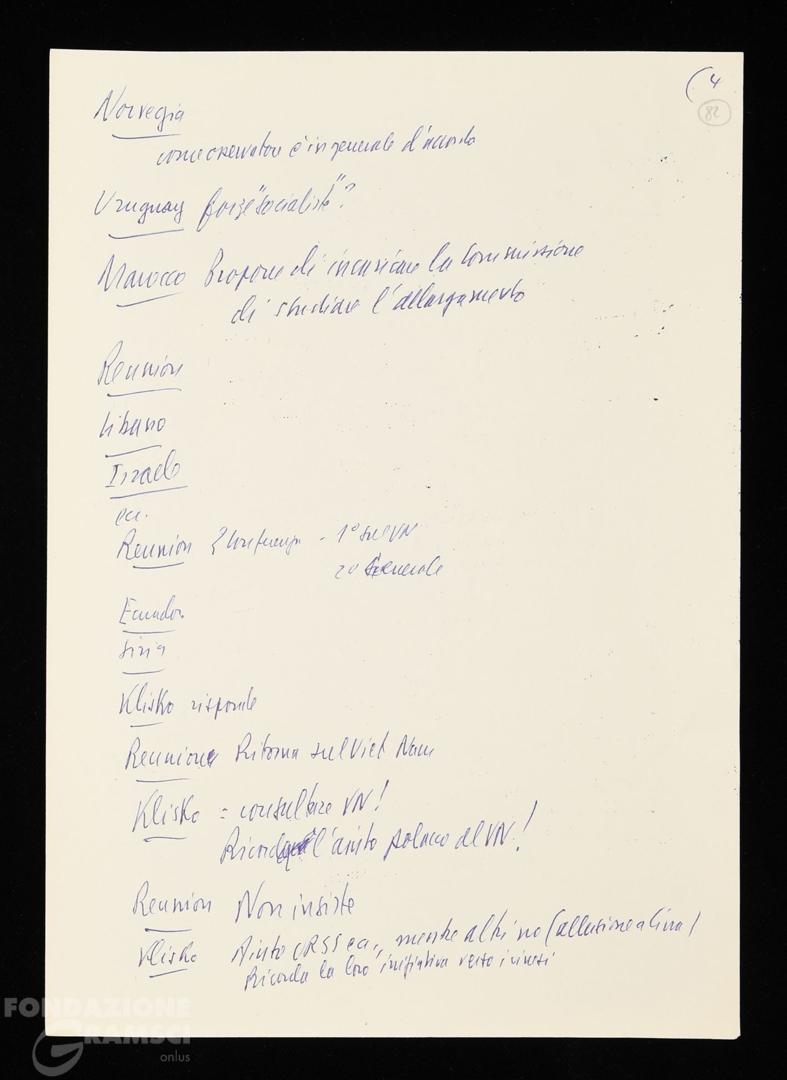 (4
82
Norvegia
come osservatore è in generale d'accordo
Uruguay forze "socialiste"?
Marocco Propone di incaricare la Commissione
di studiare l'allargamento
Reunion
Libano
Israele
ecc.
Reunion 2 Conferenze - 1° sul VN
2° Generale
Ecuador
Siria
Klisko risponde
Reunione Ritorna sul Viet Nam
Klisko = consultare VN!
Ricorda l'aiuto polacco al VN!
Reunion Non insiste
Klisko Aiuto URSS ecc., mentre altri no (allusione a Cina)
Ricorda la loro iniziativa verso i cinesi
FONDAZIONE
GRAMSCI
onlus